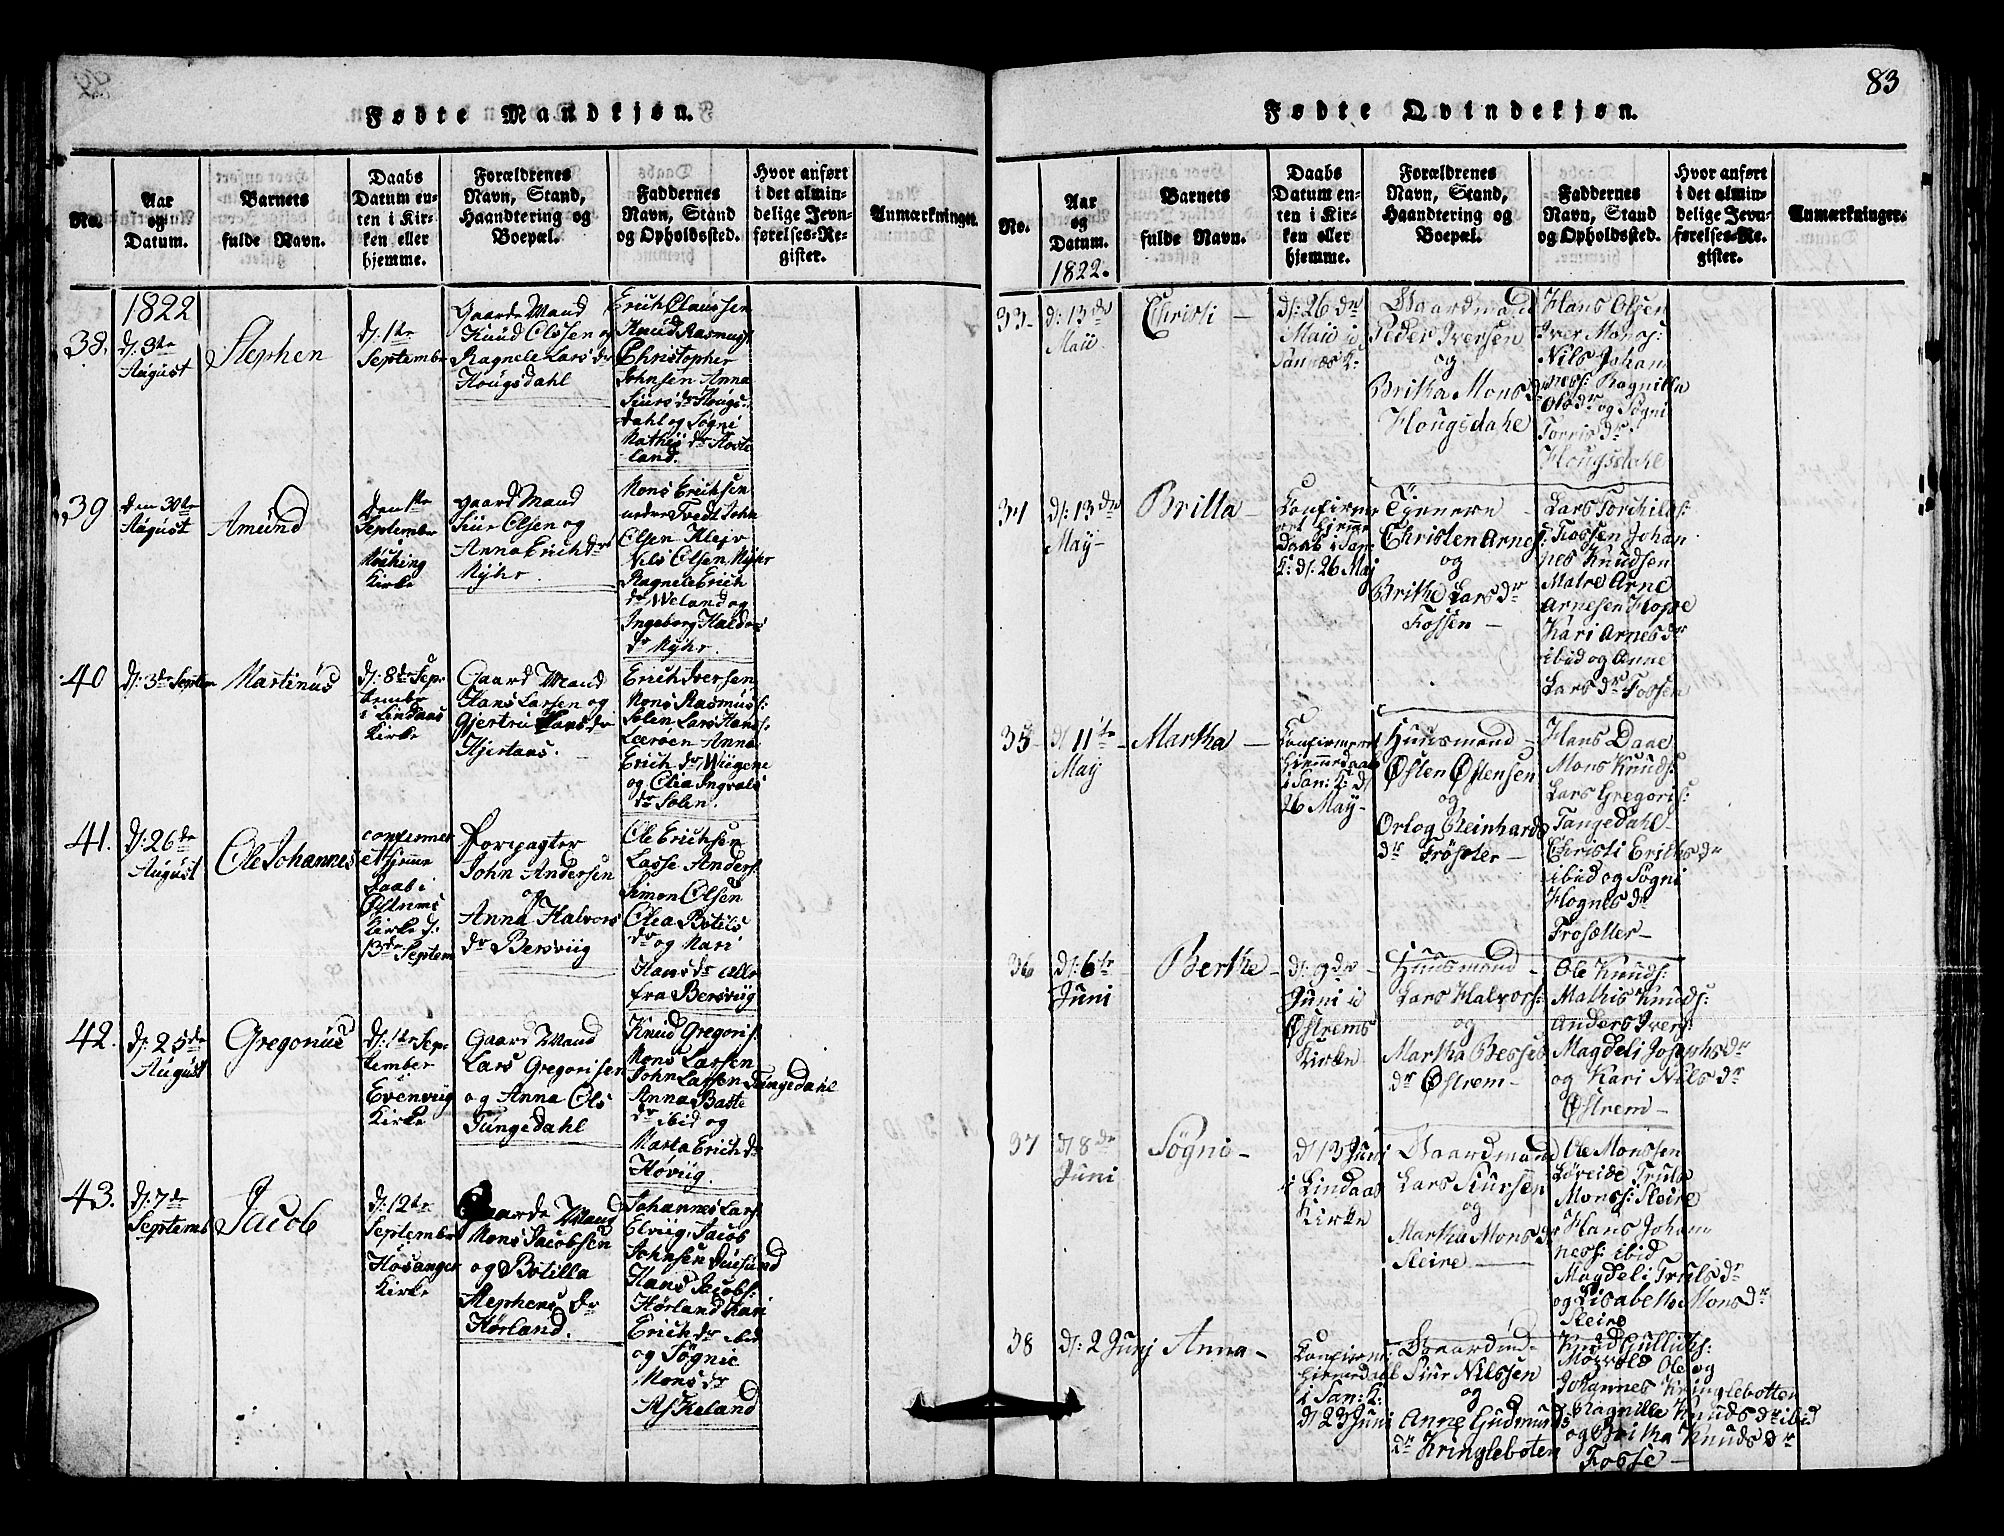 Fødte Mandkjøn.
No.
Aar
og
Datum.
Barnets
fulde Navn.
Daabs
Datum en-
ten i Kir-
ken eller
hjemme.
Forældrenes
Navn, Stand,
Haandtering og
Boepæl.
Faddernes
Navn, Stand
og Opholdssted.
Hvor anført
i det almin-
delige Jevn-
førelses-Re-
gister.
Anmærkninger.
1822
38.
d: 3die
August
Stephen
d: 1te
September
Gaarde Mand
Knud Olssen og
Ragnele Lars dr
Hougsdahl
Erich Claussen
Knud Rasmus:
Christopher
Johnsen Anna
Siurs dr Hougs-
dahl og Søgni
Mathis dr Hoste
land.
39
den 30te
August
Amund
Den 1ste
September
Kirke
Gaard Mand
Siur Olsen og
Anna Erich dr
Nyhr.
Mons Erichsen
nedre Tvedt John
Olsen Kleiv
Nils Olsen Nyhr
Ragnele Erich
dr Weland og
Ingeborg Haldor
dr Nyhr.
40
d: 3de Septem
Martinus
d: 8de Sep-
tember
i Lindaas
Kirke
Gaard Mand
Hans Larsen og
Gjertru Lars dr
Hjertaas.
Erich Iversen
Mons Rasmus:
Solen Lars Hans:
Lærøen Anna
Erich dr Wiigene
og Olia Ingvals
dr Solen.
41.
d: 26de
August
Ole Johannes
confirmer
et Hjeme
Daab i
Østrems
Kirke d:
13de Septem
Forpagter
John Andersen
og
Anna Halvors
dr Bersviig
Ole Erichsen
Lasse Anders:
Simon Olsen
Olea Botils
dr og Mari
Hans dr alle
fra Bersviig
42.
d: 25de
August
Gregorius
d: 1te Sep-
tember
Evenviig
Kirke
Gaard Mand
Lars Gregorisen
og Anna Ols
Tungedahl
Knud Gregoris:
Mons Larsen
John Larsen Tungedahl
Anna Baste
dr ibid og
Marta Erich dr
Høviig.
43.
d: 7de
Septemb
Jacob
d: 12te
September
Hosanger
Kirke
Gaarde Mand
Mons Jacobsen
og Botilla
Stephens dr
Hørland.
Johannes Lars:
Elviig Jacob
Johnsen Duesund
Hans Jacobs:
Hørland Kari
Erich dr ibid
og Søgnie
Mons dr
Askeland
83
Fødte Qvindekjøn.
No.
Aar
og
Datum.
1822.
Barnets
fulde Navn.
Daabs
Datum en-
ten i Kir-
ken eller
hjemme.
Forældrenes
Navn, Stand,
Haandtering og
Boepæl.
Faddernes
Navn, Stand
og Opholdssted.
Hvor anført
i det almin-
delige Jevn-
førelses-Re-
gister.
Anmærkninger.
33-
d: 13de
Maii
Christi -
d: 26 de
Maii i
Sannæs K:
Gaardmand
Peder Iversen
og
Britha Mons d
Hougsdahl
Hans Olsen
Iver Mons:
Nils Johan
nes: Ragnilla
Ols dr og Søgni
Torris dr
Hougsdahl
34
d: 13de
May-
Britta-
Confirme
ret hieme
Daab i San:
K: d: 26 Maj
Tjenere-
Christen Arnes:
og
Brithe Lars dr
Fossen-
Lars Torchils:
Fossen Johan
nes Knudsen
Matre Arne
Arnesen Hope
Kari Arnes dr
ibid og Anne
Lars dr Fossen
35-
d: 11te
May
Martha-
Confirmert
hiemmedaab
i San: K: d:
26 May-
Huusmand-
Østen Østensen
og
Orlog Reinhards
dr Frøsæter-
Hans Daae
Mons Knuds:
Lars Gregoris:
Tangedahl-
Christi Erichs dr
ibid og Søgni
Hognes dr
Frosætter-
36
d: 6te
Juni
Berthe-
d: 9de
Juni i
Østrems
Kirke
Huusmand-
Lars Halvors:
og
Martha Besses
dr Østrem-
Ole Knuds:
Mathis Knuds:
Anders Ivers:
Magdeli Josephs dr
og Kari Nils dr
Østrem-
37
d: 8de
Juni
Søgni-
d: 13 Juni
i Lindaas
Kirke
Gaardmand
Lars Siursen
og
Martha Mons dr
Sleire-
Ole Monssen
Løveide Truls
Mons: Sleire
Hans Johan
nes: ibid
Magdeli Truls dr
og Lisabeth Mons dr
Sleire
38
d: 2 Junj
Anna-
Confirm:
hiemedaab
i San: K:
d: 23 Juni
Gaardmd-
Siur Nilssen
og
Anne Gudmunds
dr Kringleboten
Knud Gullichs:
Ole og
Johannes Kringlebotten
Ragnille Knuds dr ibid
og Britha Knuds dr
Fosse-